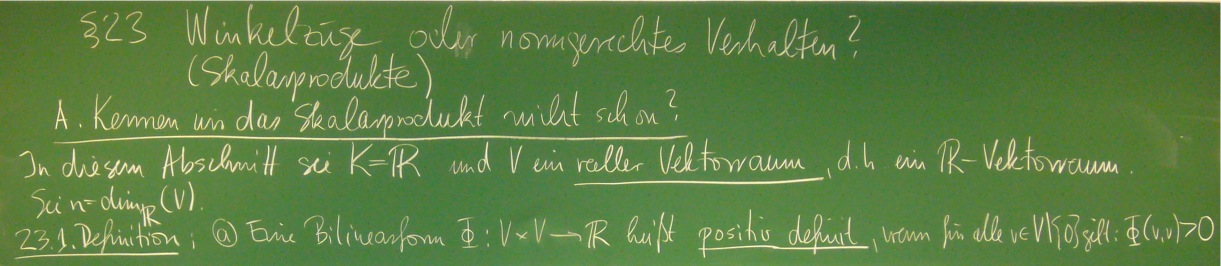 §23 Winkelzüge oder normgerechtes Verhalten?
(Skalarprodukte)
A. Kennen wir das Skalarprodukt nicht schon?
In diesem Abschnitt sei K=ℝ und V ein reeller Vektorraum, d.h ein ℝ-Vektorraum.
Sei n=dim_ℝ(V).
23.1. Definition: ⓐ Eine Bilinearform Φ: V×V→ℝ heißt positiv definit, wenn für alle v∈V\{0} gilt: Φ(v,v)>0